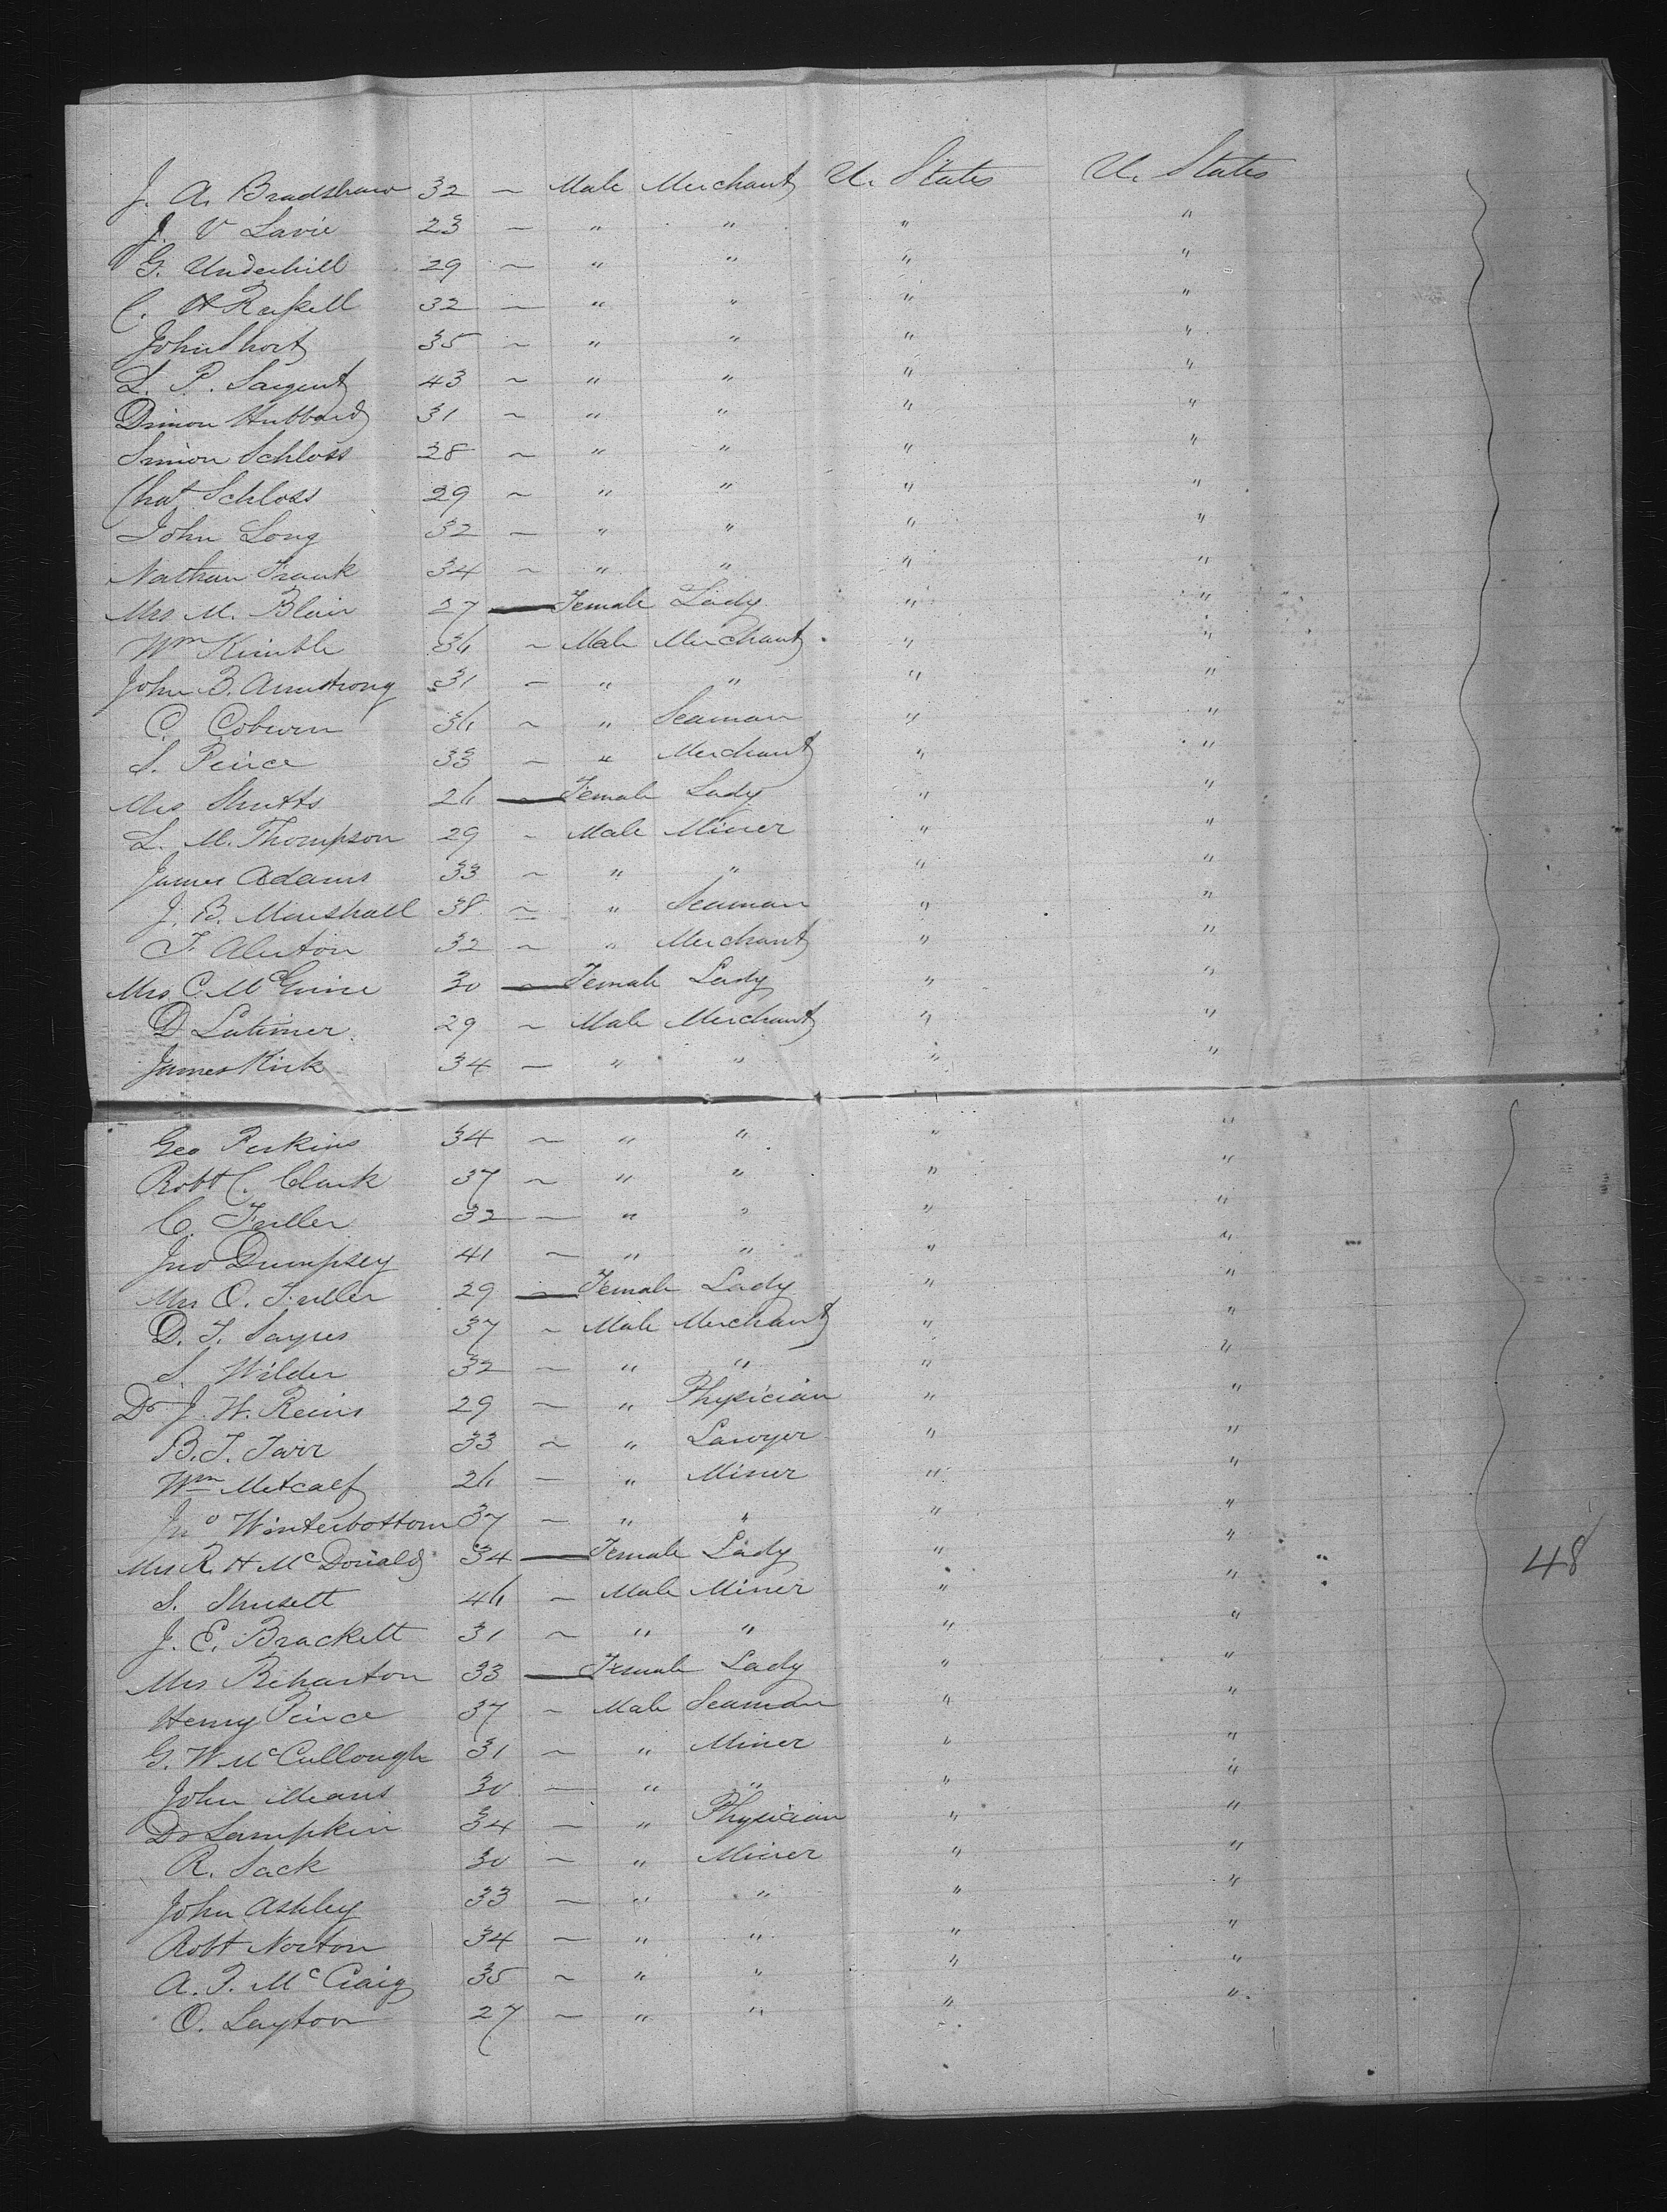 J. A. Bradshaw 32 ~ Male Merchant U. States U. States
J. V Lavie 23 ~ " " " "
G. Underhill 29 ~ " " " "
C. H 32 ~ " " " "
John Short 35 ~ " " " "
L. P. Sargent 43 ~ " " " "
Dimon Hubbard 31 ~ " " " "
Simon Schloss 28 ~ " " " "
Chas Schloss 29 ~ " " " "
John Long 32 ~ " " " "
Nathan Frank 34 ~ " " " "
Mrs M. Blair 27 — Female Lady " "
Wm Kimble 36 ~ Male Merchant " "
John B. Armstrong 31 ~ " " " "
C. Coburn 36 ~ " Seaman " "
S. Peirce 33 ~ " Merchant " "
Mrs Shutts 26 — Female Lady " "
L. M. Thompson 29 ~ Male Miner " "
James Adams 33 ~ " " " "
J. B. Marshall 38 ~ " Seaman " "
32 ~ " Merchant " "
Mrs C. McGuire 30 — Female Lady " "
D Latimer 29 ~ Male Merchant " "
James Kirk 34 ~ " " " "
Geo Perkins 34 ~ " " " "
Robt C. Clark 37 ~ " " " "
C. Fuller 32 ~ " " " "
Jno Dumpsey 41 ~ " " " "
Mrs O. Fuller 29 — Female Lady " "
D. T. Sayres 37 ~ Male Merchant " "
S. Wilder 32 ~ " " " "
Dr J. W. Reins 29 ~ " Physician " "
B. T. Tarr 33 ~ " Lawyer " "
Wm Metcalf 26 ~ " Miner " "
Jno Winterbottom 37 ~ " " " "
Mrs R. H McDonald 34 — Female Lady " " 48
S. Shusett 46 ~ Male Miner " "
J. E. Brackett 31 ~ " " " "
Mrs Reharton 33 — Female Lady " "
Henry Peirce 37 ~ Male Seaman " "
G. W McCullough 31 ~ " Miner " "
John Means 30 ~ " " " "
Dr Lampkin 34 ~ " Physician " "
R. Sack 30 ~ " Miner " "
John Ashley 33 ~ " " " "
Robt Norton 34 ~ " " " "
A. F. McCraig 35 ~ " " " "
O. Laytoor 27 ~ " " " "